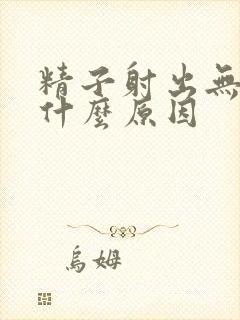 精子射出無
什麼原因
烏姆